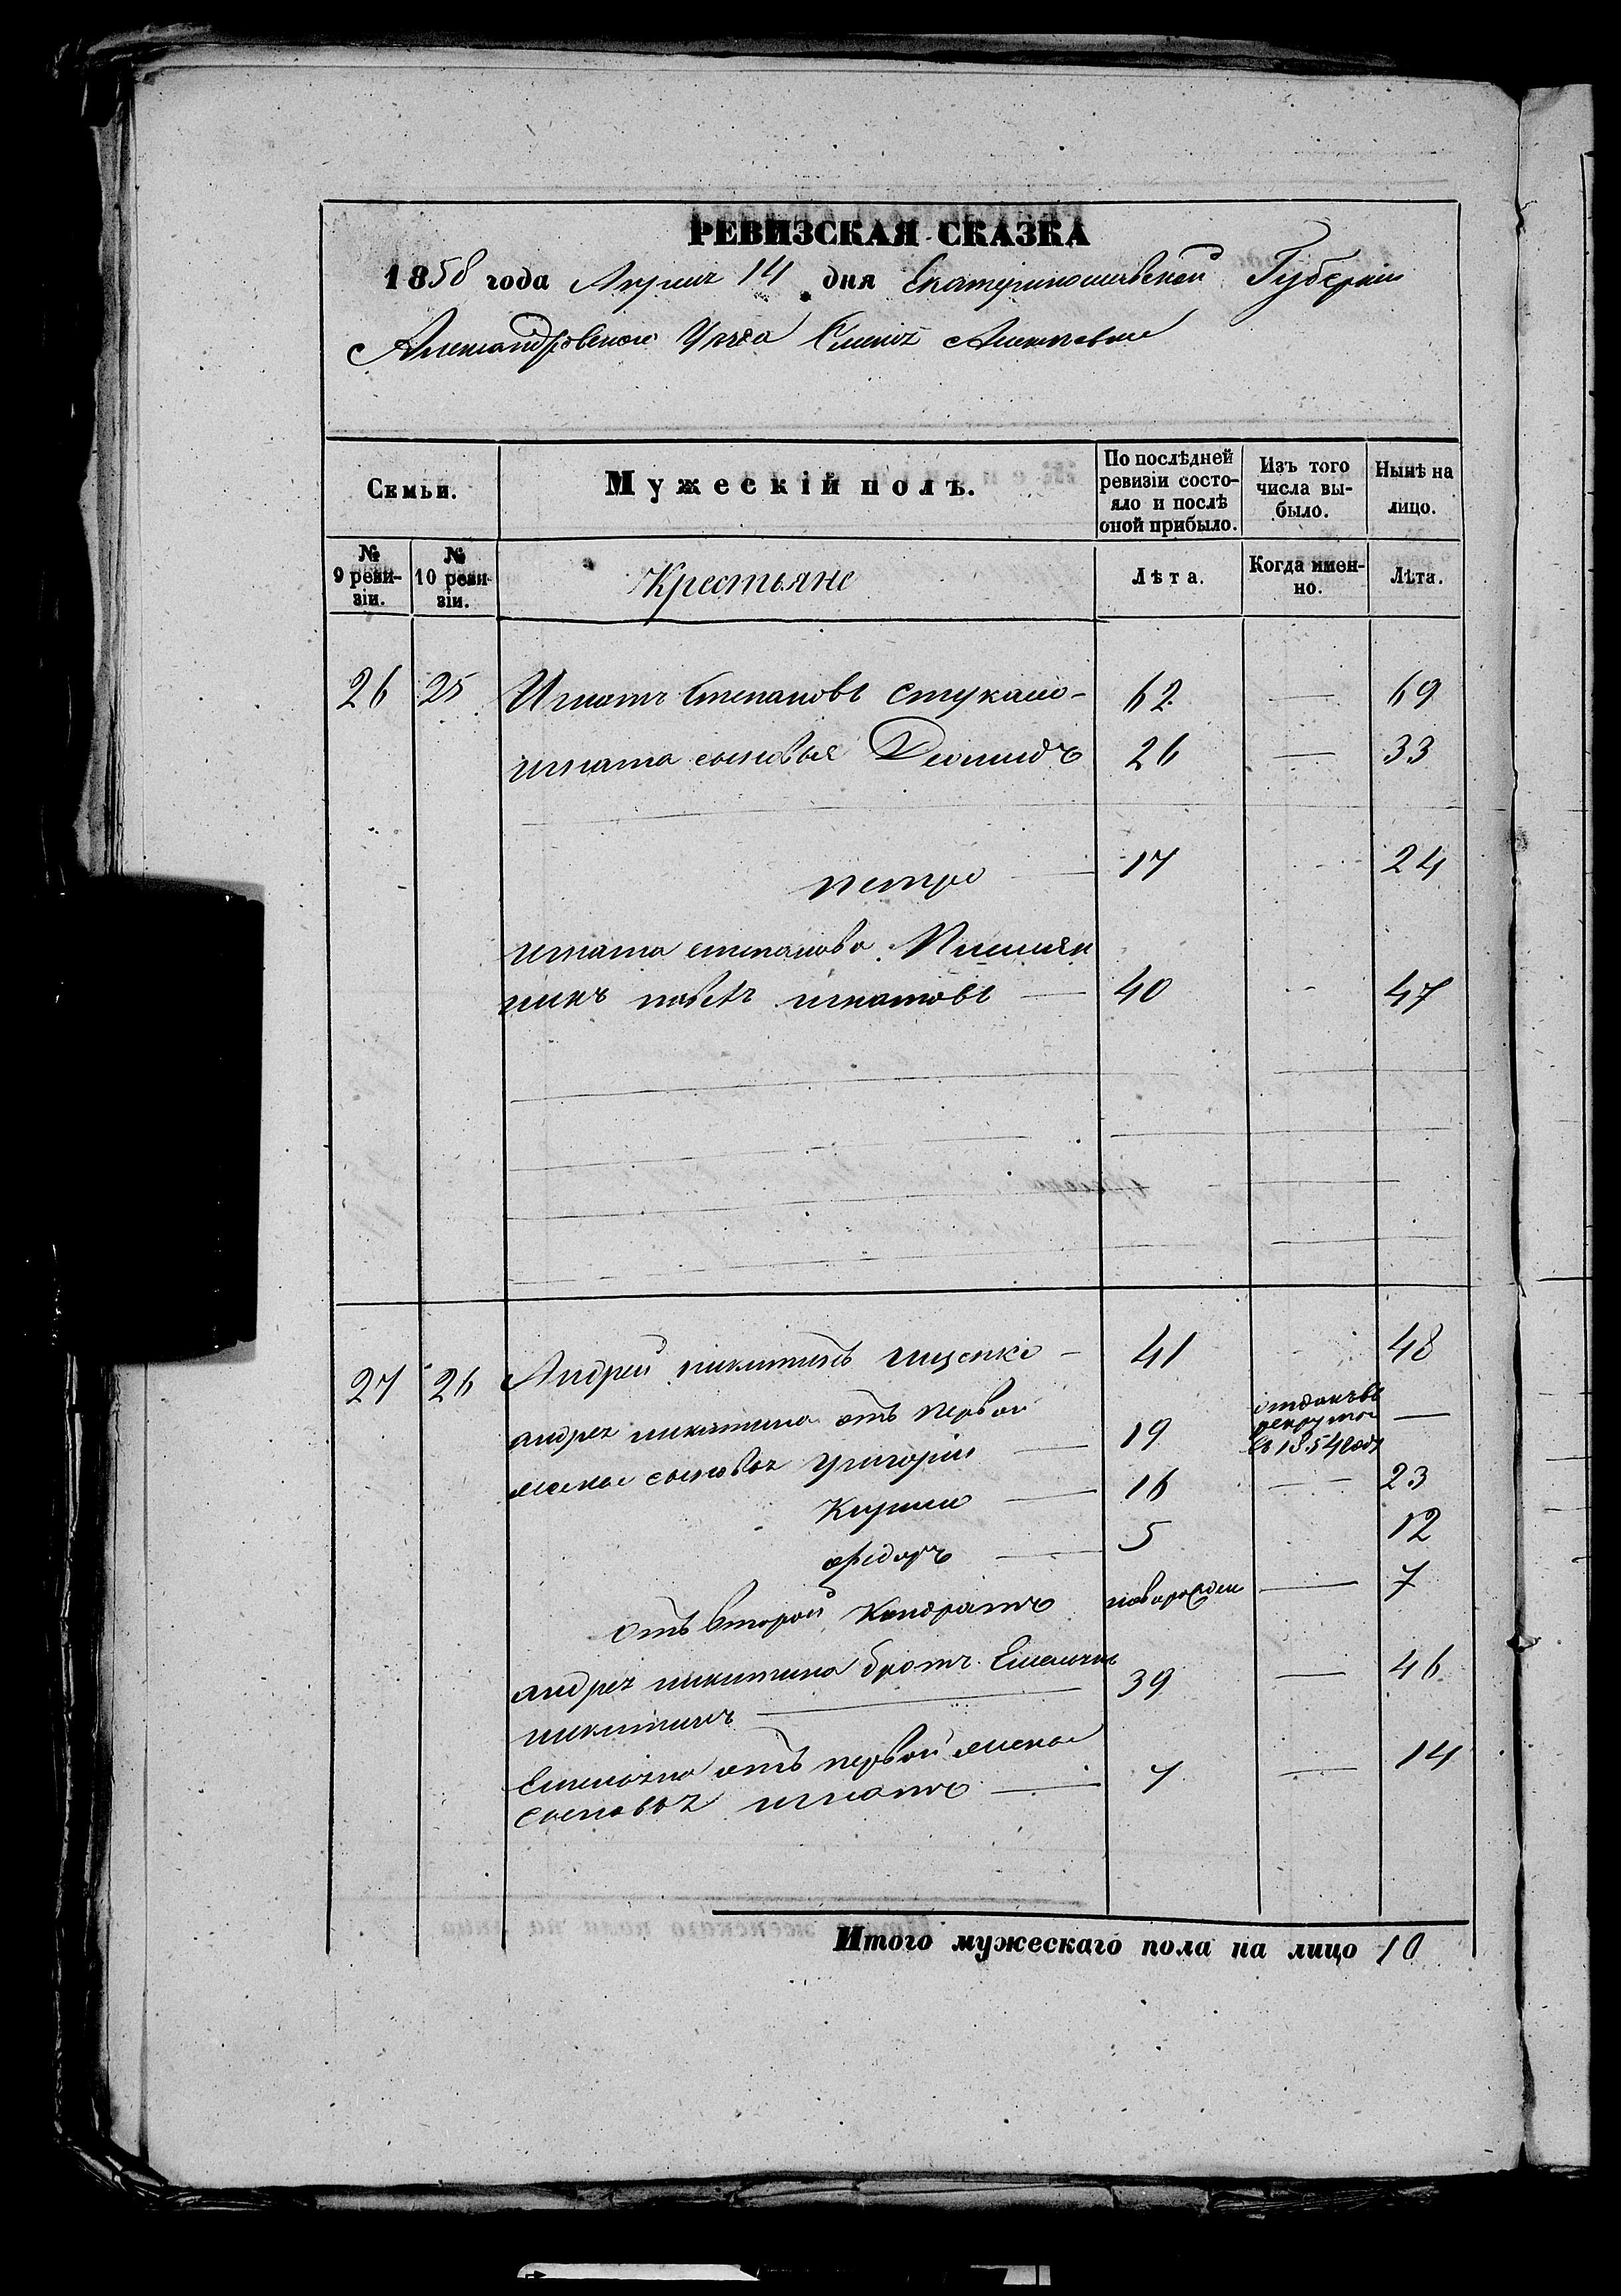 РЕВИЗСКАЯ СКАЗКА
1858 года Апреля 14 дня Екатеринославской Губернии
Александровского Уезда
Семьи.
Мужескій полъ.
По послѣдней ревизіи состо-
яло и послѣ
оной прибыло.
Изъ того
числа вы-
было.
Нынѣ на
лицо.
№
9 реви-
зіи.
№
10 реви-
зіи.
Крестьяне
Лѣта.
Когда имен-
но.
Лѣта.
26 25 Игнатъ Степановъ 62 — 69
игната сыновья Леонидъ 26 — 33
петро — 17 24
игната степанова Племян
никъ павелъ игнатовъ — 40 47
27 26 Андрей никитинъ гиценко — 41 48
андрея никитина отъ первой
жены сыновья Григорій — 19 отданъ въ
рекруты
въ 1854 году —
Кирило — 16 — 23
федоръ — 5 12
отъ второй Кондратъ новорожден — 7
андрея никитина братъ Емельянъ 39 — 46
никитинъ —
Емельяна отъ первой жены
сыновья игнатъ — 7 — 14
Итого мужескаго пола на лицо 10